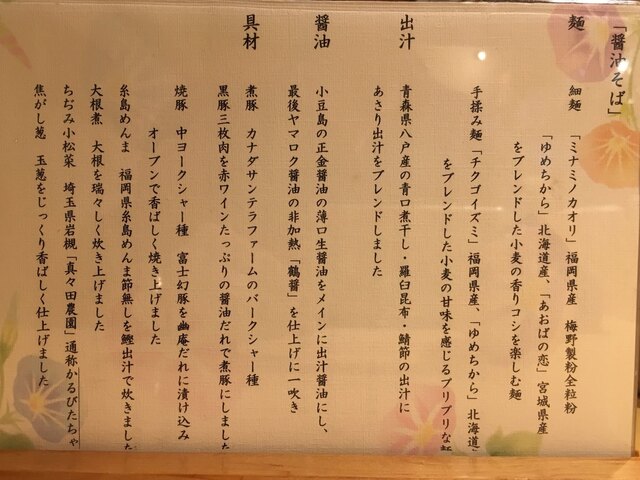 「醤油そば」
麺
細麺　「ミナミノカオリ」福岡県産　梅野製粉全粒粉
「ゆめちから」北海道産、「あおばの恋」宮城県産
をブレンドした小麦の香りコシを楽しむ麺
手揉み麺「チクゴイズミ」福岡県産、「ゆめちから」北海道
をブレンドした小麦の甘味を感じるプリプリな麺
出汁
青森県八戸産の青口煮干し・羅臼昆布・鯖節の出汁に
あさり出汁をブレンドしました
醤油
小豆島の正金醤油の薄口生醤油をメインに出汁醤油にし、
最後ヤマロク醤油の非加熱「鶴醤」を仕上げに一吹き
具材
煮豚　カナダサンテラファームのバークシャー種
黒豚三枚肉を赤ワインたっぷりの醤油だれで煮豚にしました
焼豚　中ヨークシャー種　富士幻豚を幽庵だれに漬け込み
オーブンで香ばしく焼き上げました
糸島めんま　福岡県糸島めんま節無しを鰹出汁で炊きました
大根煮　大根を瑞々しく炊き上げました
ちぢみ小松菜　埼玉県岩槻「真々田農園」通称かるびたちゃ
焦がし葱　玉葱をじっくり香ばしく仕上げました